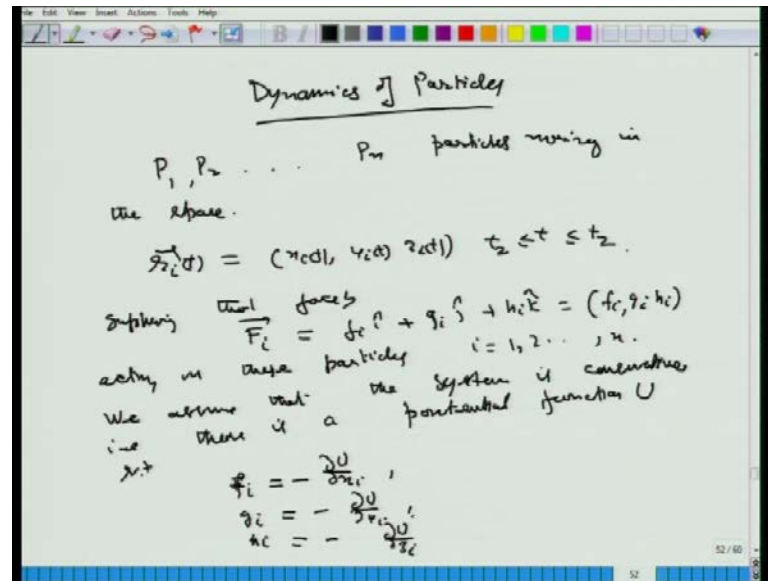 File Edit View Insert Actions Tools Help
Dynamics of Particles
P₁, P₂ . . . Pₙ particles moving in
the space.
r⃗ᵢ(t) = (xᵢ(t), yᵢ(t) zᵢ(t)) t₂ ≤ t ≤ t₂.
Suppose that forces
F⃗ᵢ = fᵢ î + gᵢ ĵ + hᵢ k̂ = (fᵢ, gᵢ hᵢ)
acting on these particles i = 1, 2 . . . , n.
We assume that the system is conservative
i.e there is a potential function U
s.t
fᵢ = - ∂U/∂xᵢ ,
gᵢ = - ∂U/∂yᵢ ,
hᵢ = - ∂U/∂zᵢ
52 / 60
52